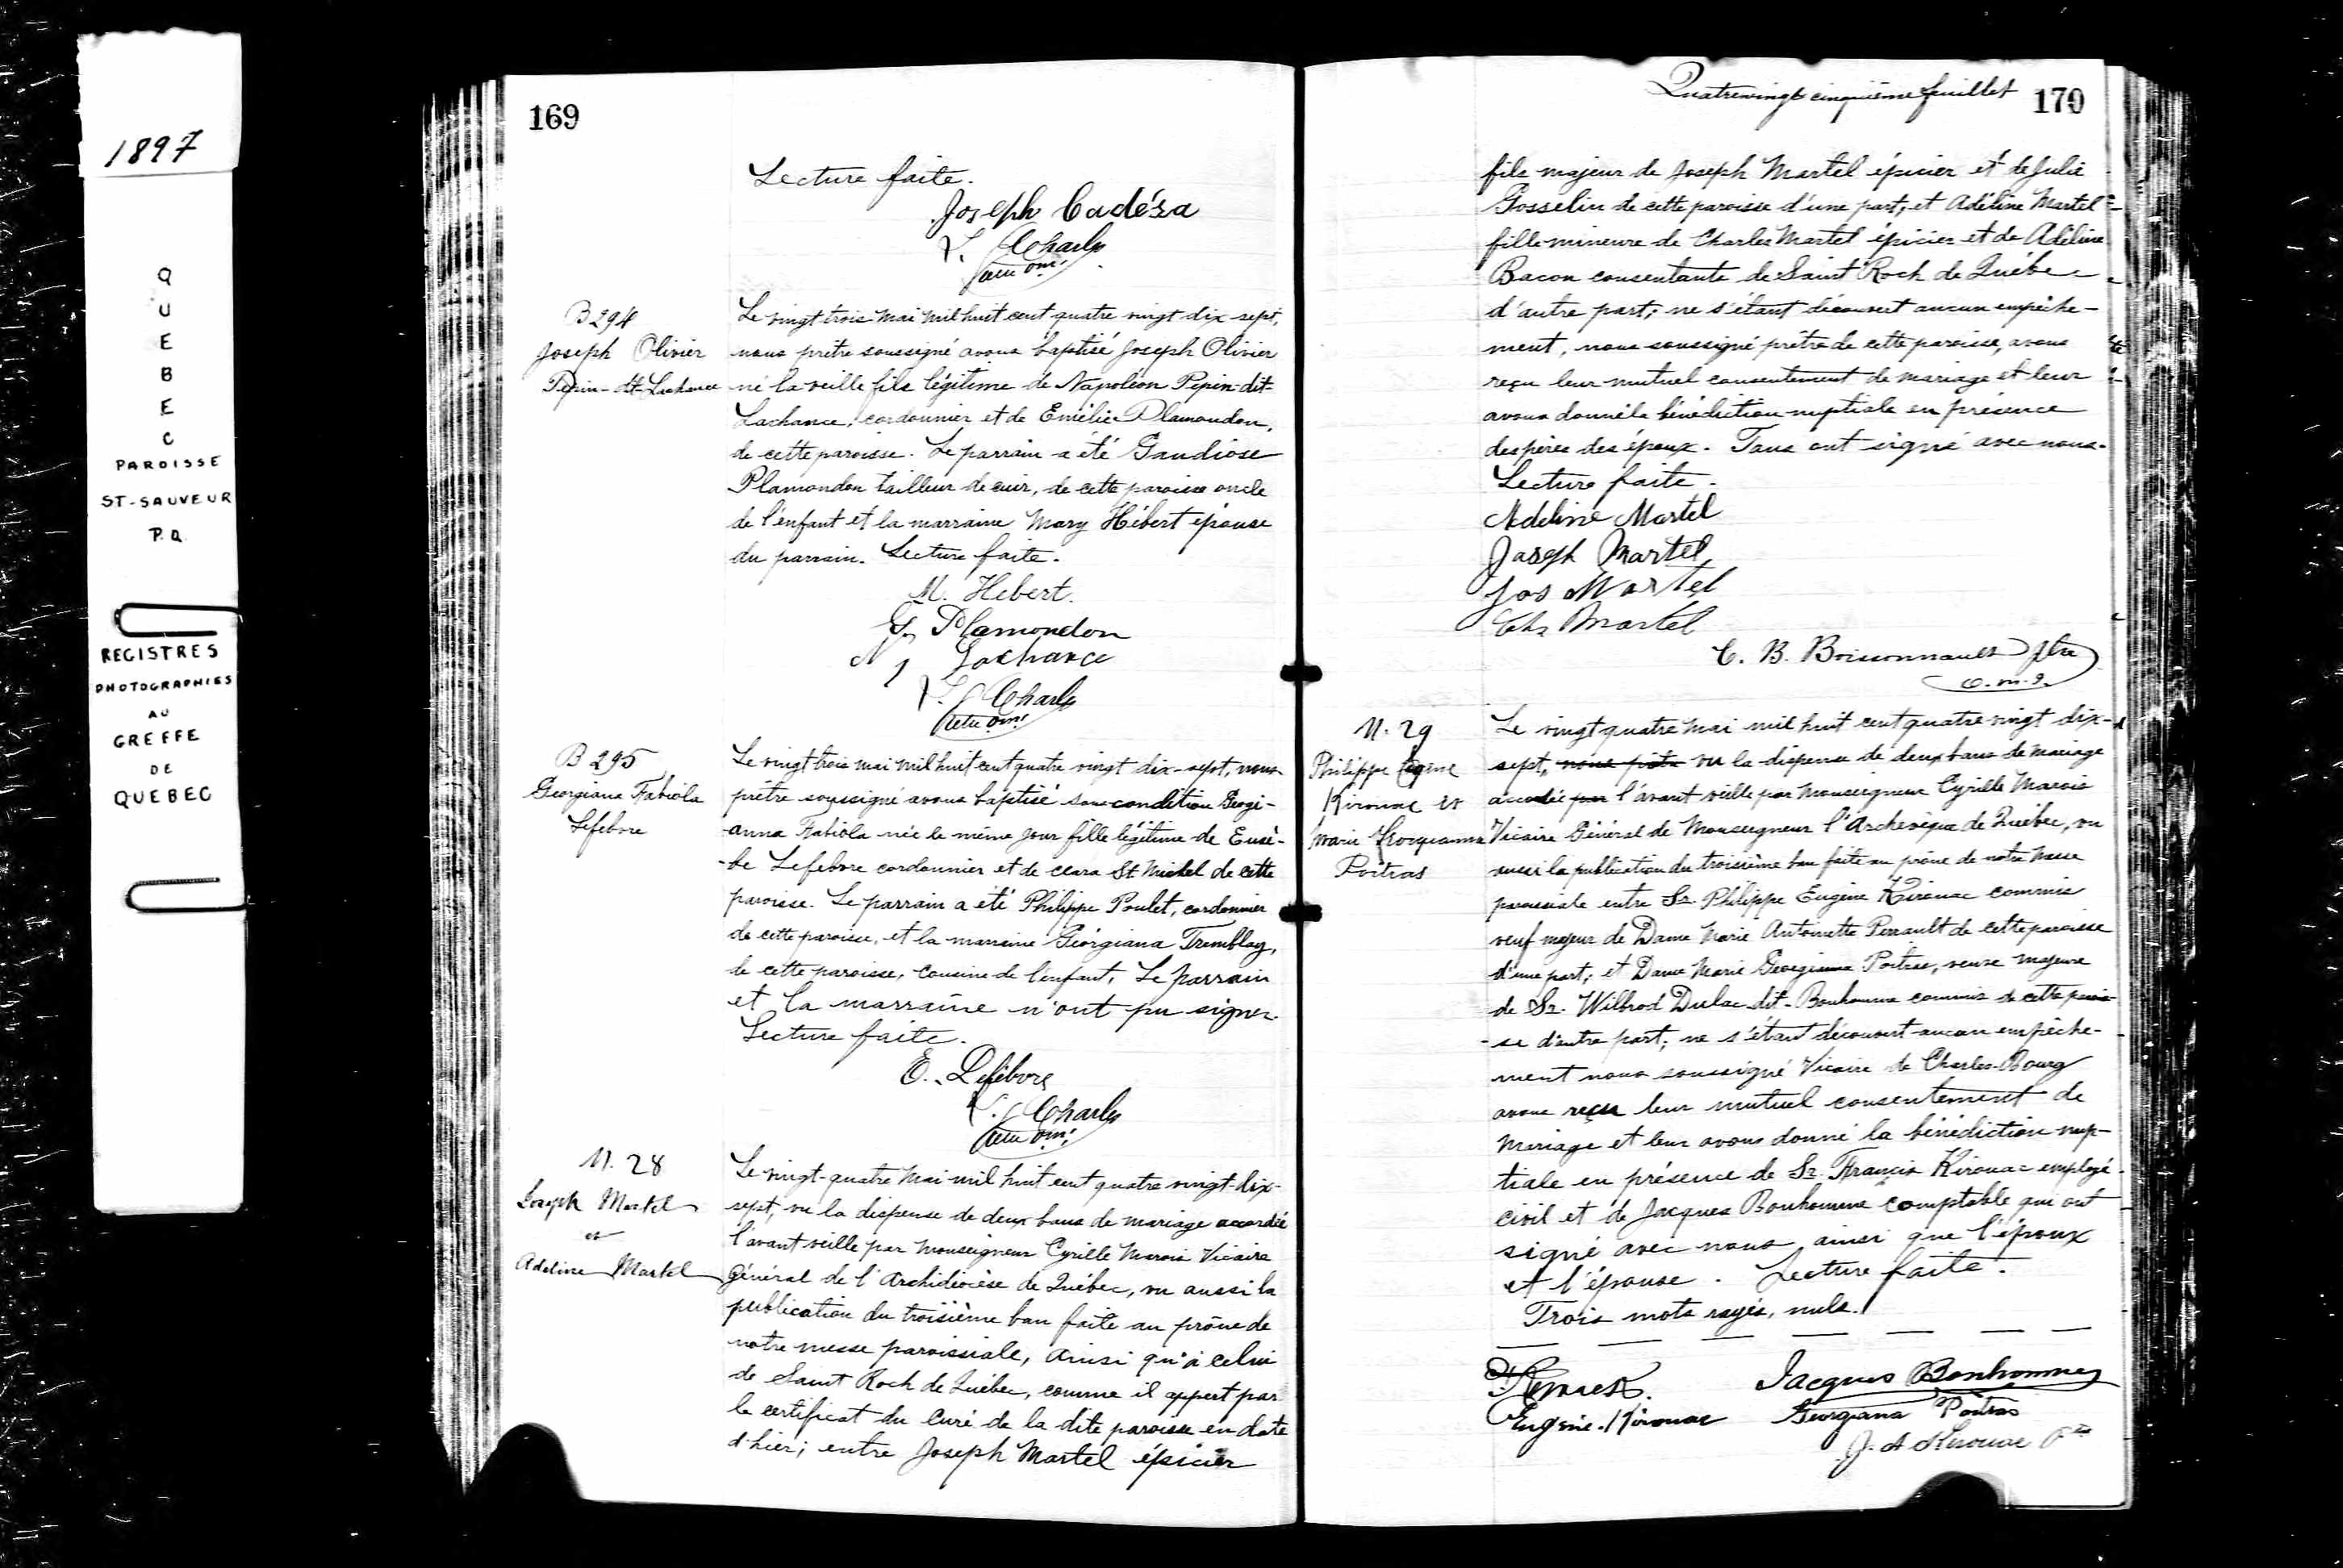 1897
QUEBEC
PAROISSE
ST-SAUVEUR
P.Q.
REGISTRES
PHOTOGRAPHIES
AU
GREFFE
DE
QUEBEC
169
Lecture faite.
Joseph Cadéza
Charles
omi
B 294
Joseph Olivier
Pepin-dit-Lachance
Le vingt trois mai mil huit cent quatre vingt dix sept,
nous prêtre soussigné avons baptisé Joseph Olivier
né la veille fils légitime de Napoléon Pepin-dit-
Lachance, cordonnier et de Emélie Plamondon,
de cette paroisse. Le parrain a été Gaudiose
Plamondon tailleur de cuir, de cette paroisse oncle
de l'enfant et la marraine Mary Hébert épouse
du parrain. Lecture faite.
M. Hebert.
G. Plamondon
N Lachance
Charles
omi
B 295
Georgiana Fabiola
Lefebvre
Le vingt trois mai mil huit cent quatre vingt dix-sept, nous
prêtre soussigné avons baptisé sous condition Georgi-
anna Fabiola née le même jour fille légitime de Eusè-
-be Lefebvre cordonnier et de Clara St Michel de cette
paroisse. Le parrain a été Philippe Poulet, cordonnier
de cette paroisse, et la marraine Géorgiana Tremblay,
de cette paroisse, cousine de l'enfant. Le parrain
et la marraine n'ont pu signer.
Lecture faite.
E. Lefebvre
Charles
omi
M. 28
Joseph Martel
et
Adeline Martel
Le vingt-quatre mai mil huit cent quatre vingt-dix-
sept, vu la dispense de deux bans de mariage accordée
l'avant veille par Monseigneur Cyrille Marois Vicaire
Général de l'Archidiocèse de Québec, vu aussi la
publication du troisième ban faite au prône de
notre messe paroissiale, ainsi qu'à celui
de Saint Roch de Québec, comme il appert par
le certificat du Curé de la dite paroisse en date
d'hier; entre Joseph Martel épicier
Quatrevingt cinquième feuillet 170
fils majeur de Joseph Martel épicier et de Julie
Gosselin de cette paroisse d'une part, et Adéline Martel
fille mineure de Charles Martel épicier et de Adéline
Bacon consentante de Saint Roch de Québec
d'autre part; ne s'étant découvert aucun empêche-
ment, nous soussigné prêtre de cette paroisse, avons
reçu leur mutuel consentement de mariage et leur
avons donné la bénédiction nuptiale en présence
des pères des époux. Tous ont signé avec nous.
Lecture faite.
Adeline Martel
Joseph Martel
Jos Martel
Chs Martel
C. B. Boissonnault Ptre
o.m.i.
M. 29
Philippe Eugène
Kirouac et
Marie Georgianna
Poitras
Le vingt quatre mai mil huit cent quatre vingt dix-
sept, nous prêtre vu la dispense de deux bans de mariage
accordée par l'avant veille par Monseigneur Cyrille Marois
Vicaire Général de Monseigneur l'Archevêque de Québec, vu
aussi la publication du troisième ban faite au prône de notre messe
paroissiale entre Sr. Philippe Eugène Kirouac commis
veuf majeur de Dame Marie Antoinette Perrault de cette paroisse
d'une part; et Dame Marie Georgianna Poitras, veuve majeure
de Sr. Wilbrod Dulac dit-Bonhomme commis de cette parois-
-se d'autre part; ne s'étant découvert aucun empêche-
ment nous soussigné Vicaire de Charles-Bourg
avons reçu leur mutuel consentement de
mariage et leur avons donné la bénédiction nup-
tiale en présence de Sr. François Kirouac employé
civil et de Jacques Bonhomme comptable qui ont
signé avec nous ainsi que l'époux
et l'épouse. Lecture faite.
Trois mots rayés, nuls.
F Kirouack. Jacques Bonhomme
Eugène Kirouac Georgiana Poitras
J. A Kirouac Ptre